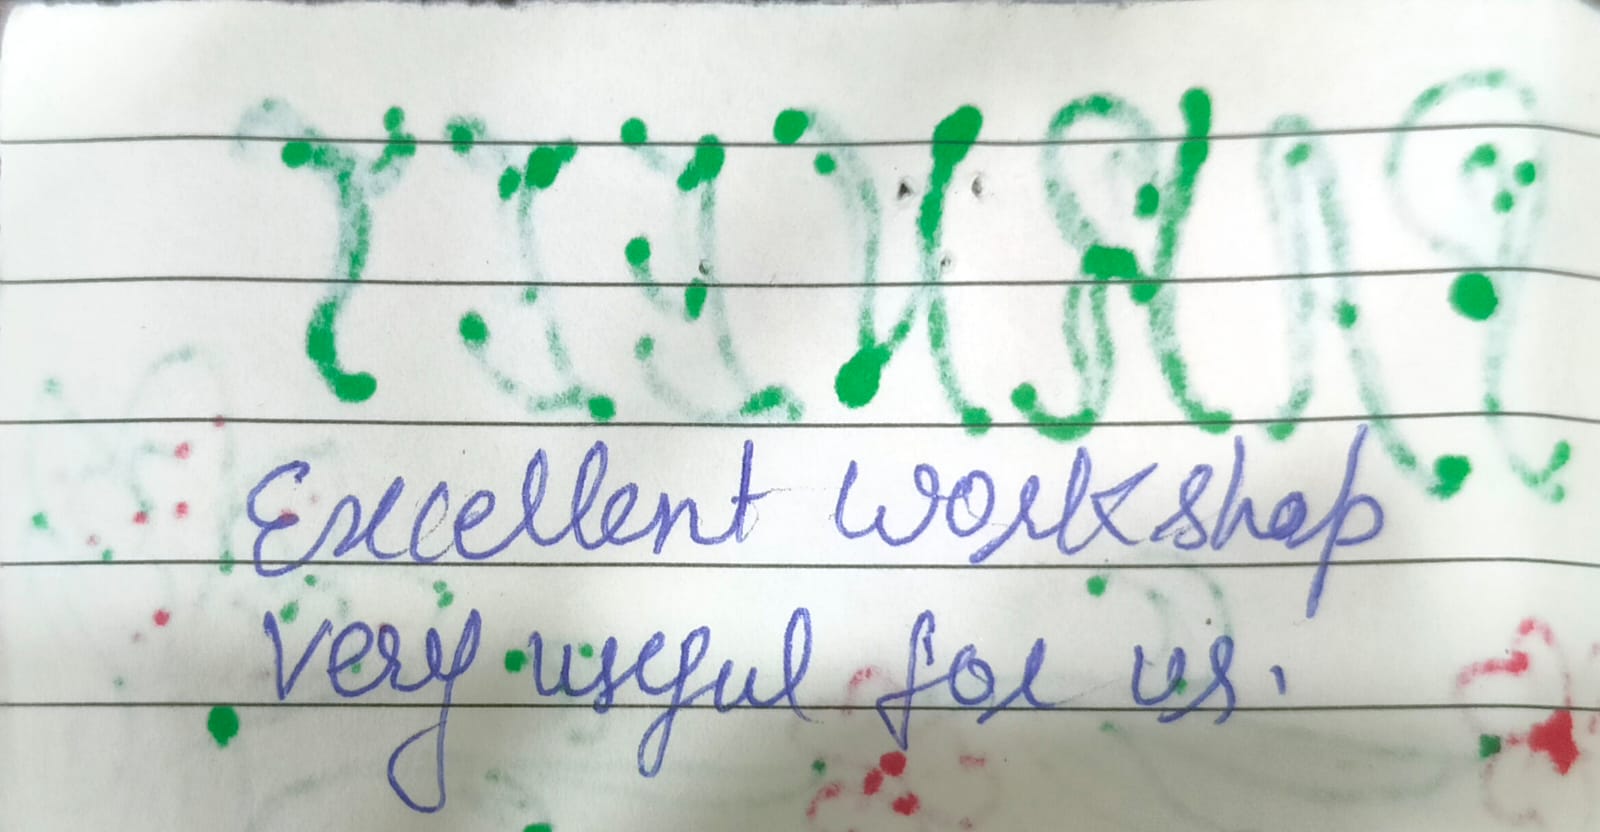 Excellent workshop
very useful for us.